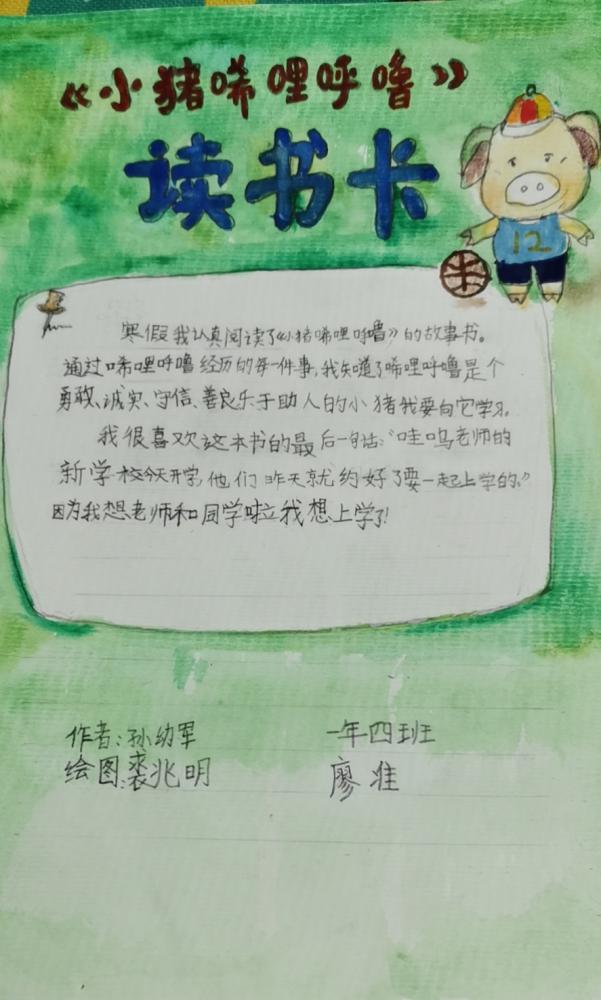 《小猪唏哩呼噜》
读书卡
12
寒假我认真阅读了《小猪唏哩呼噜》的故事书。
通过唏哩呼噜经历的每一件事,我知道了唏哩呼噜是个
勇敢、诚实、守信、善良乐于助人的小猪我要向它学习。
我很喜欢这本书的最后一句话:“哇呜老师的
新学校今天开学,他们昨天就约好了要一起上学的。”
因为我想老师和同学啦立我想上学了!
作者:孙幼军
一年四班
绘图:裘兆明
廖淮